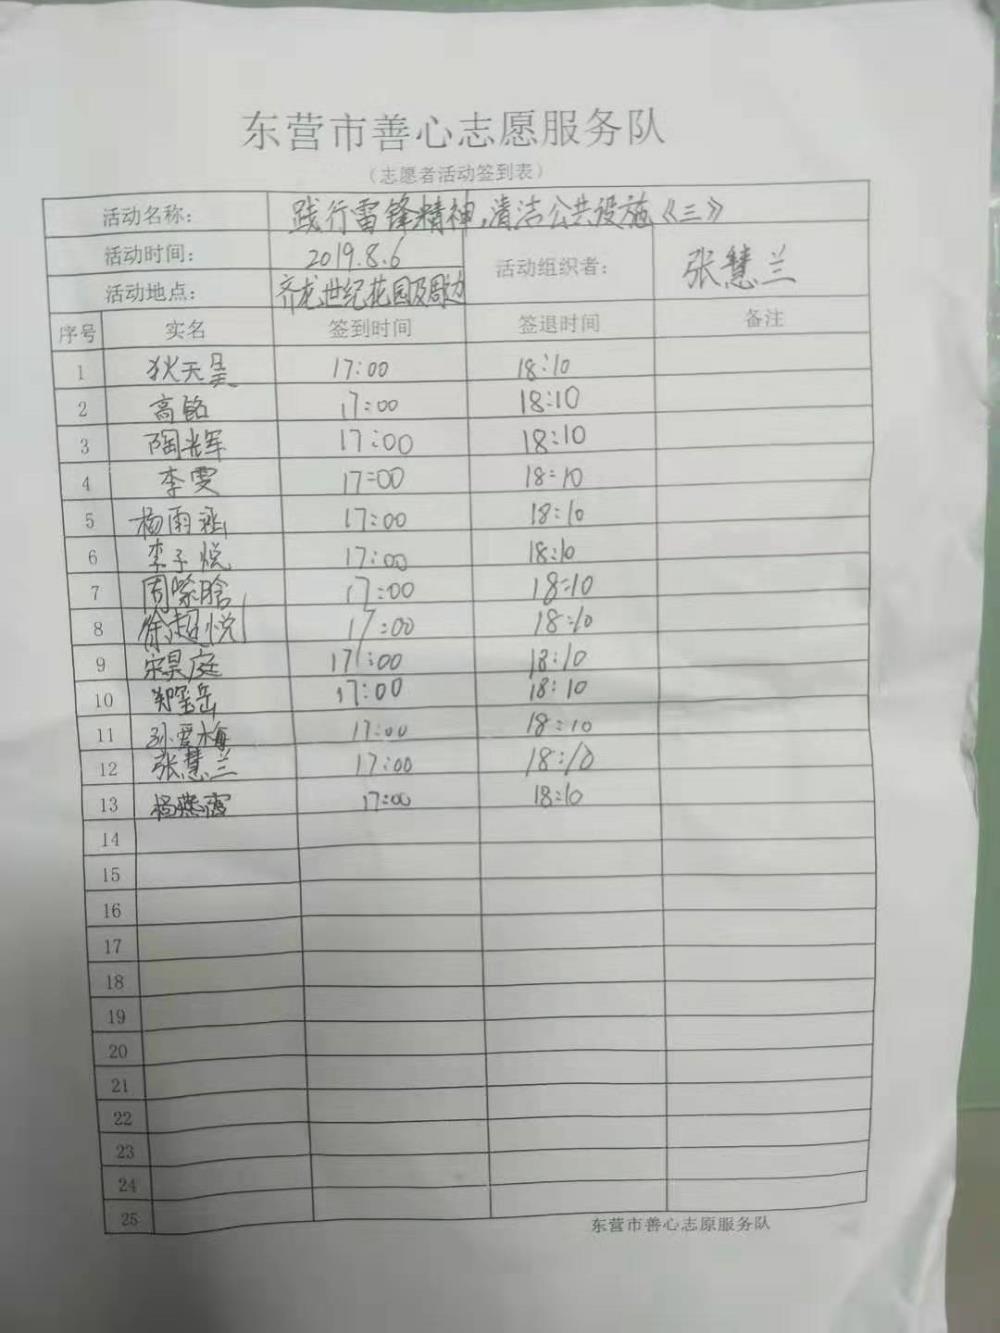 东营市善心志愿服务队
（志愿者活动签到表）
活动名称： 践行雷锋精神,清洁公共设施《三》
活动时间： 2019.8.6 活动组织者： 张慧兰
活动地点： 齐龙世纪花园及周边
序号 实名 签到时间 签退时间 备注
1 狄天昊 17:00 18:10
2 高铭 17:00 18:10
3 陶光军 17:00 18:10
4 李雯 17:00 18:10
5 杨雨涵 17:00 18:10
6 李子悦 17:00 18:10
7 17:00 18:10
8 徐超悦 17:00 18:10
9 宋昊庭 17:00 18:10
10 17:00 18:10
11 孙爱梅 17:00 18:10
12 张慧兰 17:00 18:10
13 杨燕霞 17:00 18:10
14
15
16
17
18
19
20
21
22
23
24
25
东营市善心志原服务队